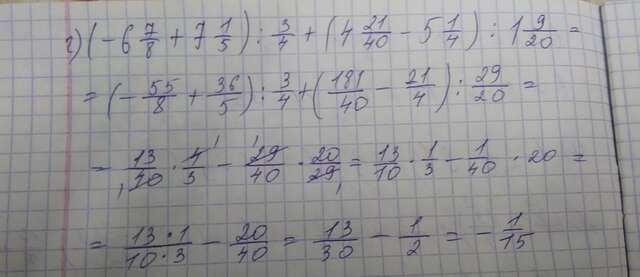 г) (-6 7/8 + 7 1/5) : 3/4 + (4 21/40 - 5 1/4) : 1 9/20 =
= (- 55/8 + 36/5) : 3/4 + (181/40 - 21/4) : 29/20 =
= 13/40 · 4/3 - 29/40 · 20/29 = 13/10 · 1/3 - 1/40 · 20 =
= 13·1/10·3 - 20/40 = 13/30 - 1/2 = - 1/15